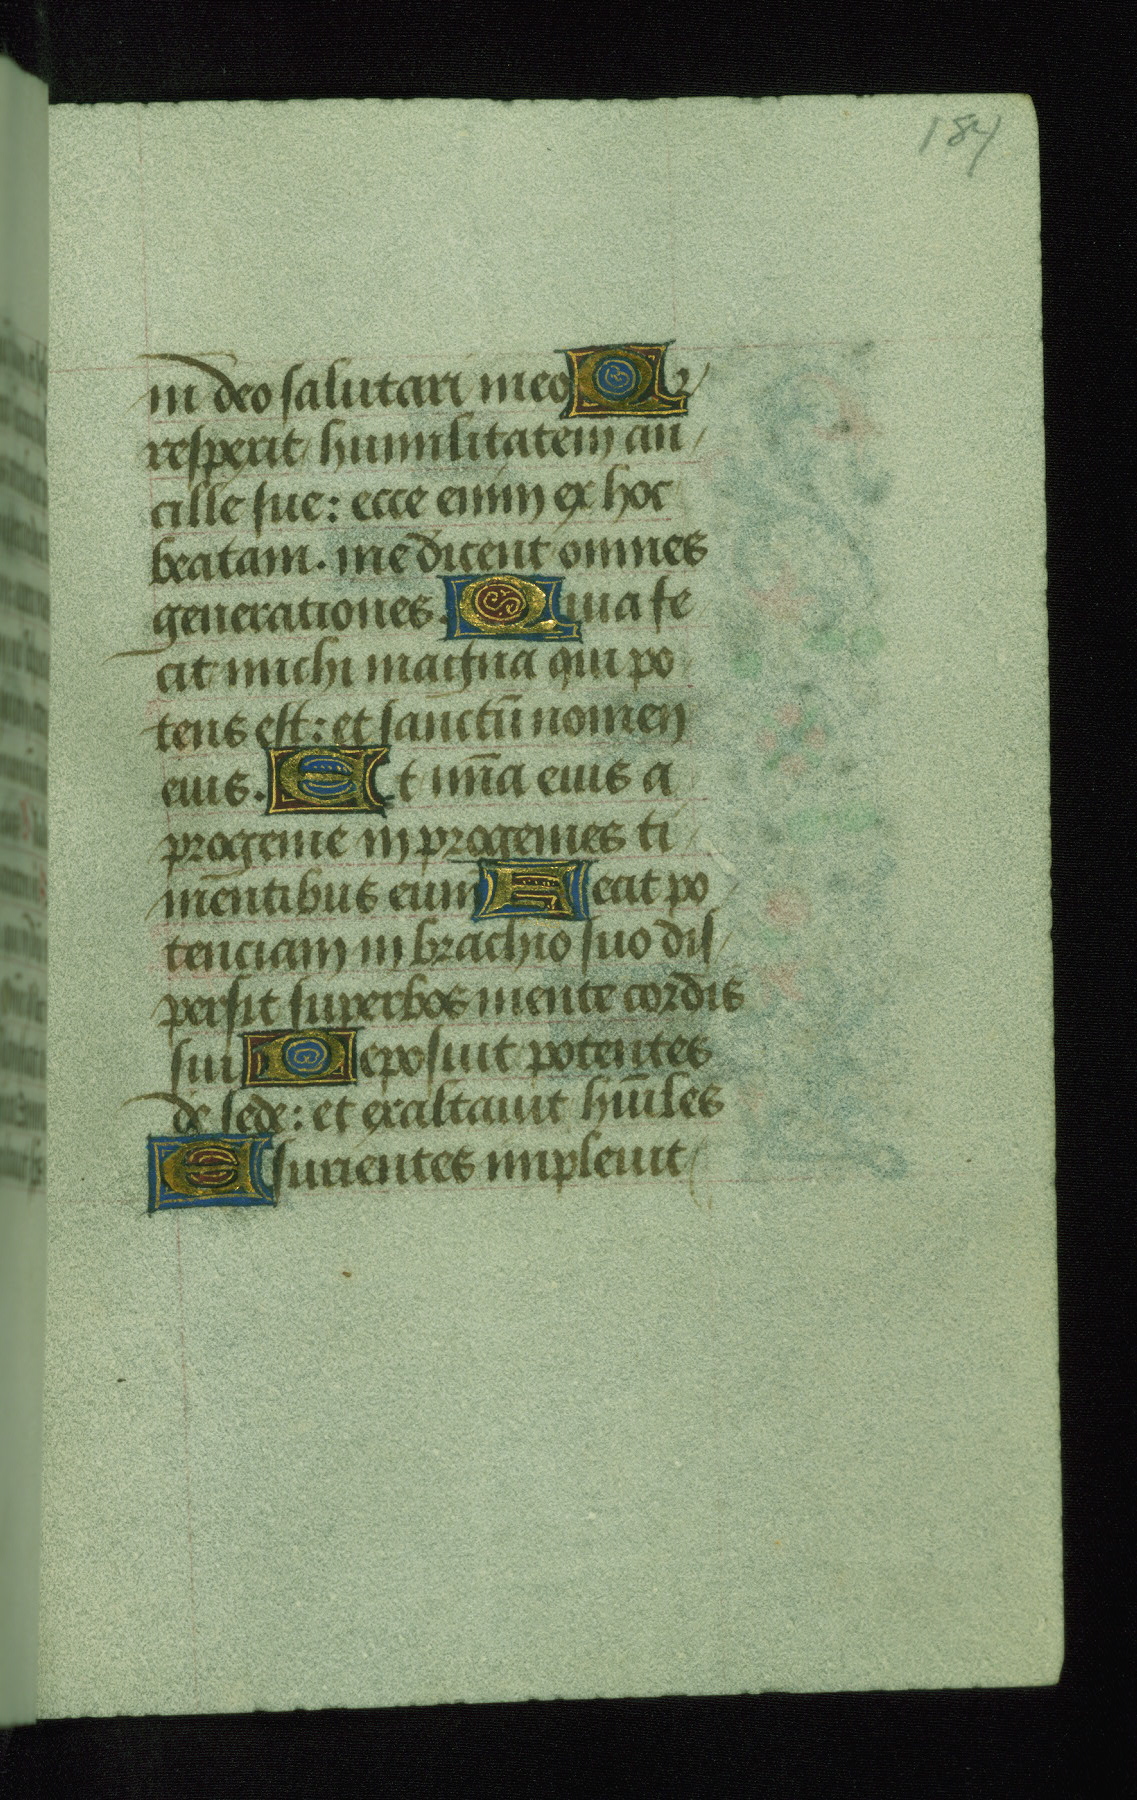 184
in deo salutari meo Qꝛ
resperit humilitatem an
cille sue: ecce enim ex hoc
beatam. me dicent omnes
generationes. Quia fe
cit michi magna qui po
tens est: et sanctū nomen
eius. Et mīa eius a
progenie in progenies ti
mentibus eum Fecit po
tenciam in brachio suo dis
persit superbos mente cordis
sui Deposuit potentes
de sede: et exaltauit hūiles
Esurientes impleuit